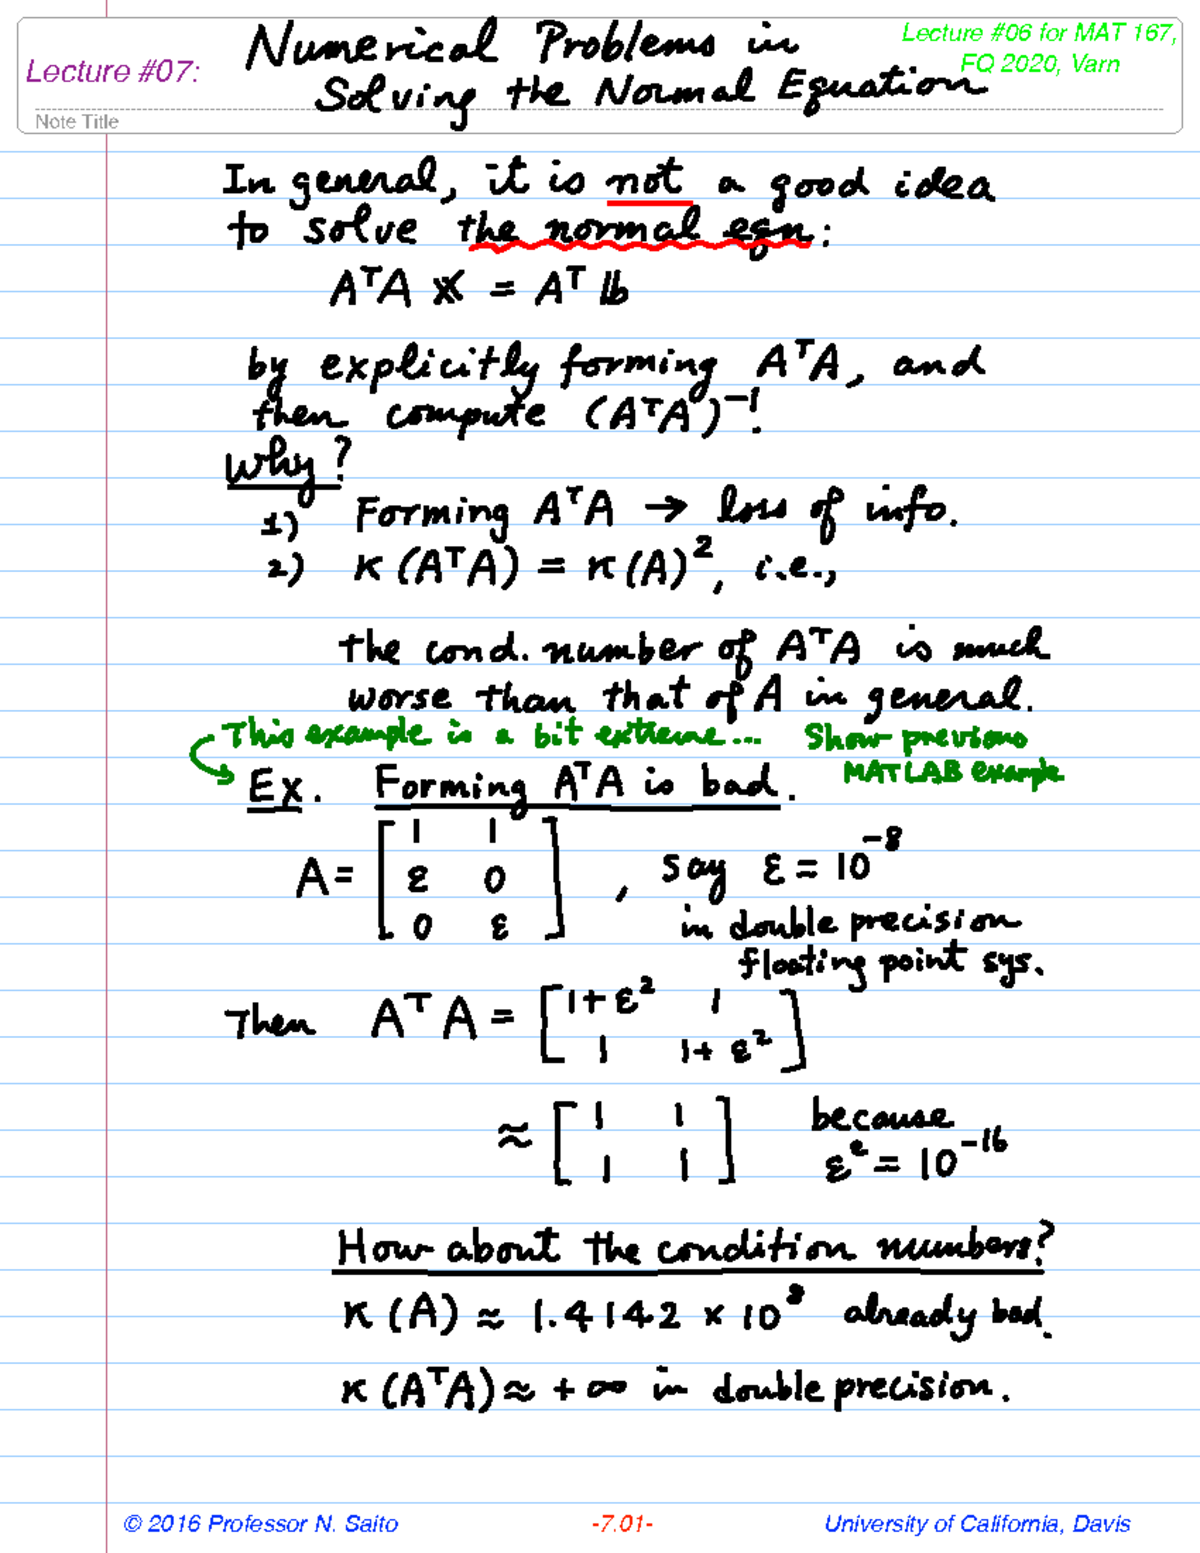 Lecture #07:
Numerical Problems in
Solving the Normal Equation
Lecture #06 for MAT 167,
FQ 2020, Varn
Note Title
In general, it is not a good idea
to solve the normal eqn:
AᵀA 𝕩 = Aᵀ 𝕓
by explicitly forming AᵀA, and
then compute (AᵀA)⁻¹!
Why?
1) Forming AᵀA → loss of info.
2) κ(AᵀA) = κ(A)², i.e.,
the cond. number of AᵀA is much
worse than that of A in general.
This example is a bit extreme... Show previous
MATLAB example
Ex. Forming AᵀA is bad.
A = [ 1 1
ε 0
0 ε ] , say ε = 10⁻⁸
in double precision
floating point sys.
Then AᵀA = [ 1+ε² 1
1 1+ε² ]
≈ [ 1 1
1 1 ] because
ε² = 10⁻¹⁶
How about the condition numbers?
κ(A) ≈ 1.4142 × 10⁸ already bad.
κ(AᵀA) ≈ +∞ in double precision.
© 2016 Professor N. Saito
-7.01-
University of California, Davis